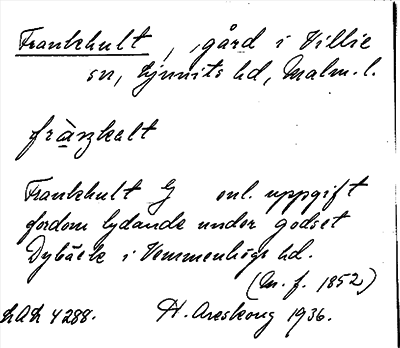 Frankhult, gård i Villie
sn, Ljunits hd, Malm. l.
frànkhalt
Frankhult G enl. uppgift
fordom lydande under godset
Dybäck i Vemmenhögs hd.
(M. f. 1852)
LAL 4288. H. Areskoug 1936.